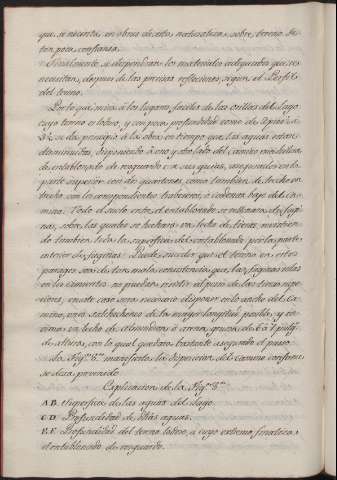 que se necesita, en obras de esta naturaleza, sobre terreno de
tan poca confianza.
Finalmente, se dispondran los materiales adequados que se
necesitan, despues de las precisas reflexiones, segun el Perfil
del terreno.
Por lo que mira á los lugares faciles de las orillas del Lago
cuyo terreno es lodoso, y con poca profundidad como de 2 pies á
3½ se da principio á la obra en tiempo que las aguas estan
disminuidas, disponiendo á uno y otro lado del camino
de entablonado de resguardo con sus quias, aseguradas en la
parte superior con quartones, como tambien de trecho en
trecho con los correspondientes trabesaños, ó cadenas baxo del ca-
mino. Todo el suelo entre el entablonado se rellenará de fagi-
nas, sobre las quales se hecharan un lecho de tierra, revistien-
do tambien toda la superficie del entablonado por la parte
interior de faginas. Puede suceder que el terreno en estos
parages sea de tan mala consistencia que las faginas solas
en los cimientos no puedan resistir el peso de las tierras supe-
riores; en este caso será necesario disponer en lo ancho del Ca-
mino, unos salchichones de la mayor longitud posible, y en-
cima un lecho de ó arena gruesa de 6 á 7 pulg.s
de altura, con lo qual quedará bastante asegurado el piso.
La Fig.ª 8.ª manifiesta la disposicion del camino conforme
se dexa prevenido.
Explicacion de la Fig.ª 8.ª
A.B. Superficie de las aguas del Lago.
C.D. Profundidad de dichas aguas.
E.F. Profundidad del terreno lodoso, á cuyo extremo finaliza
el entablonado de resguardo.